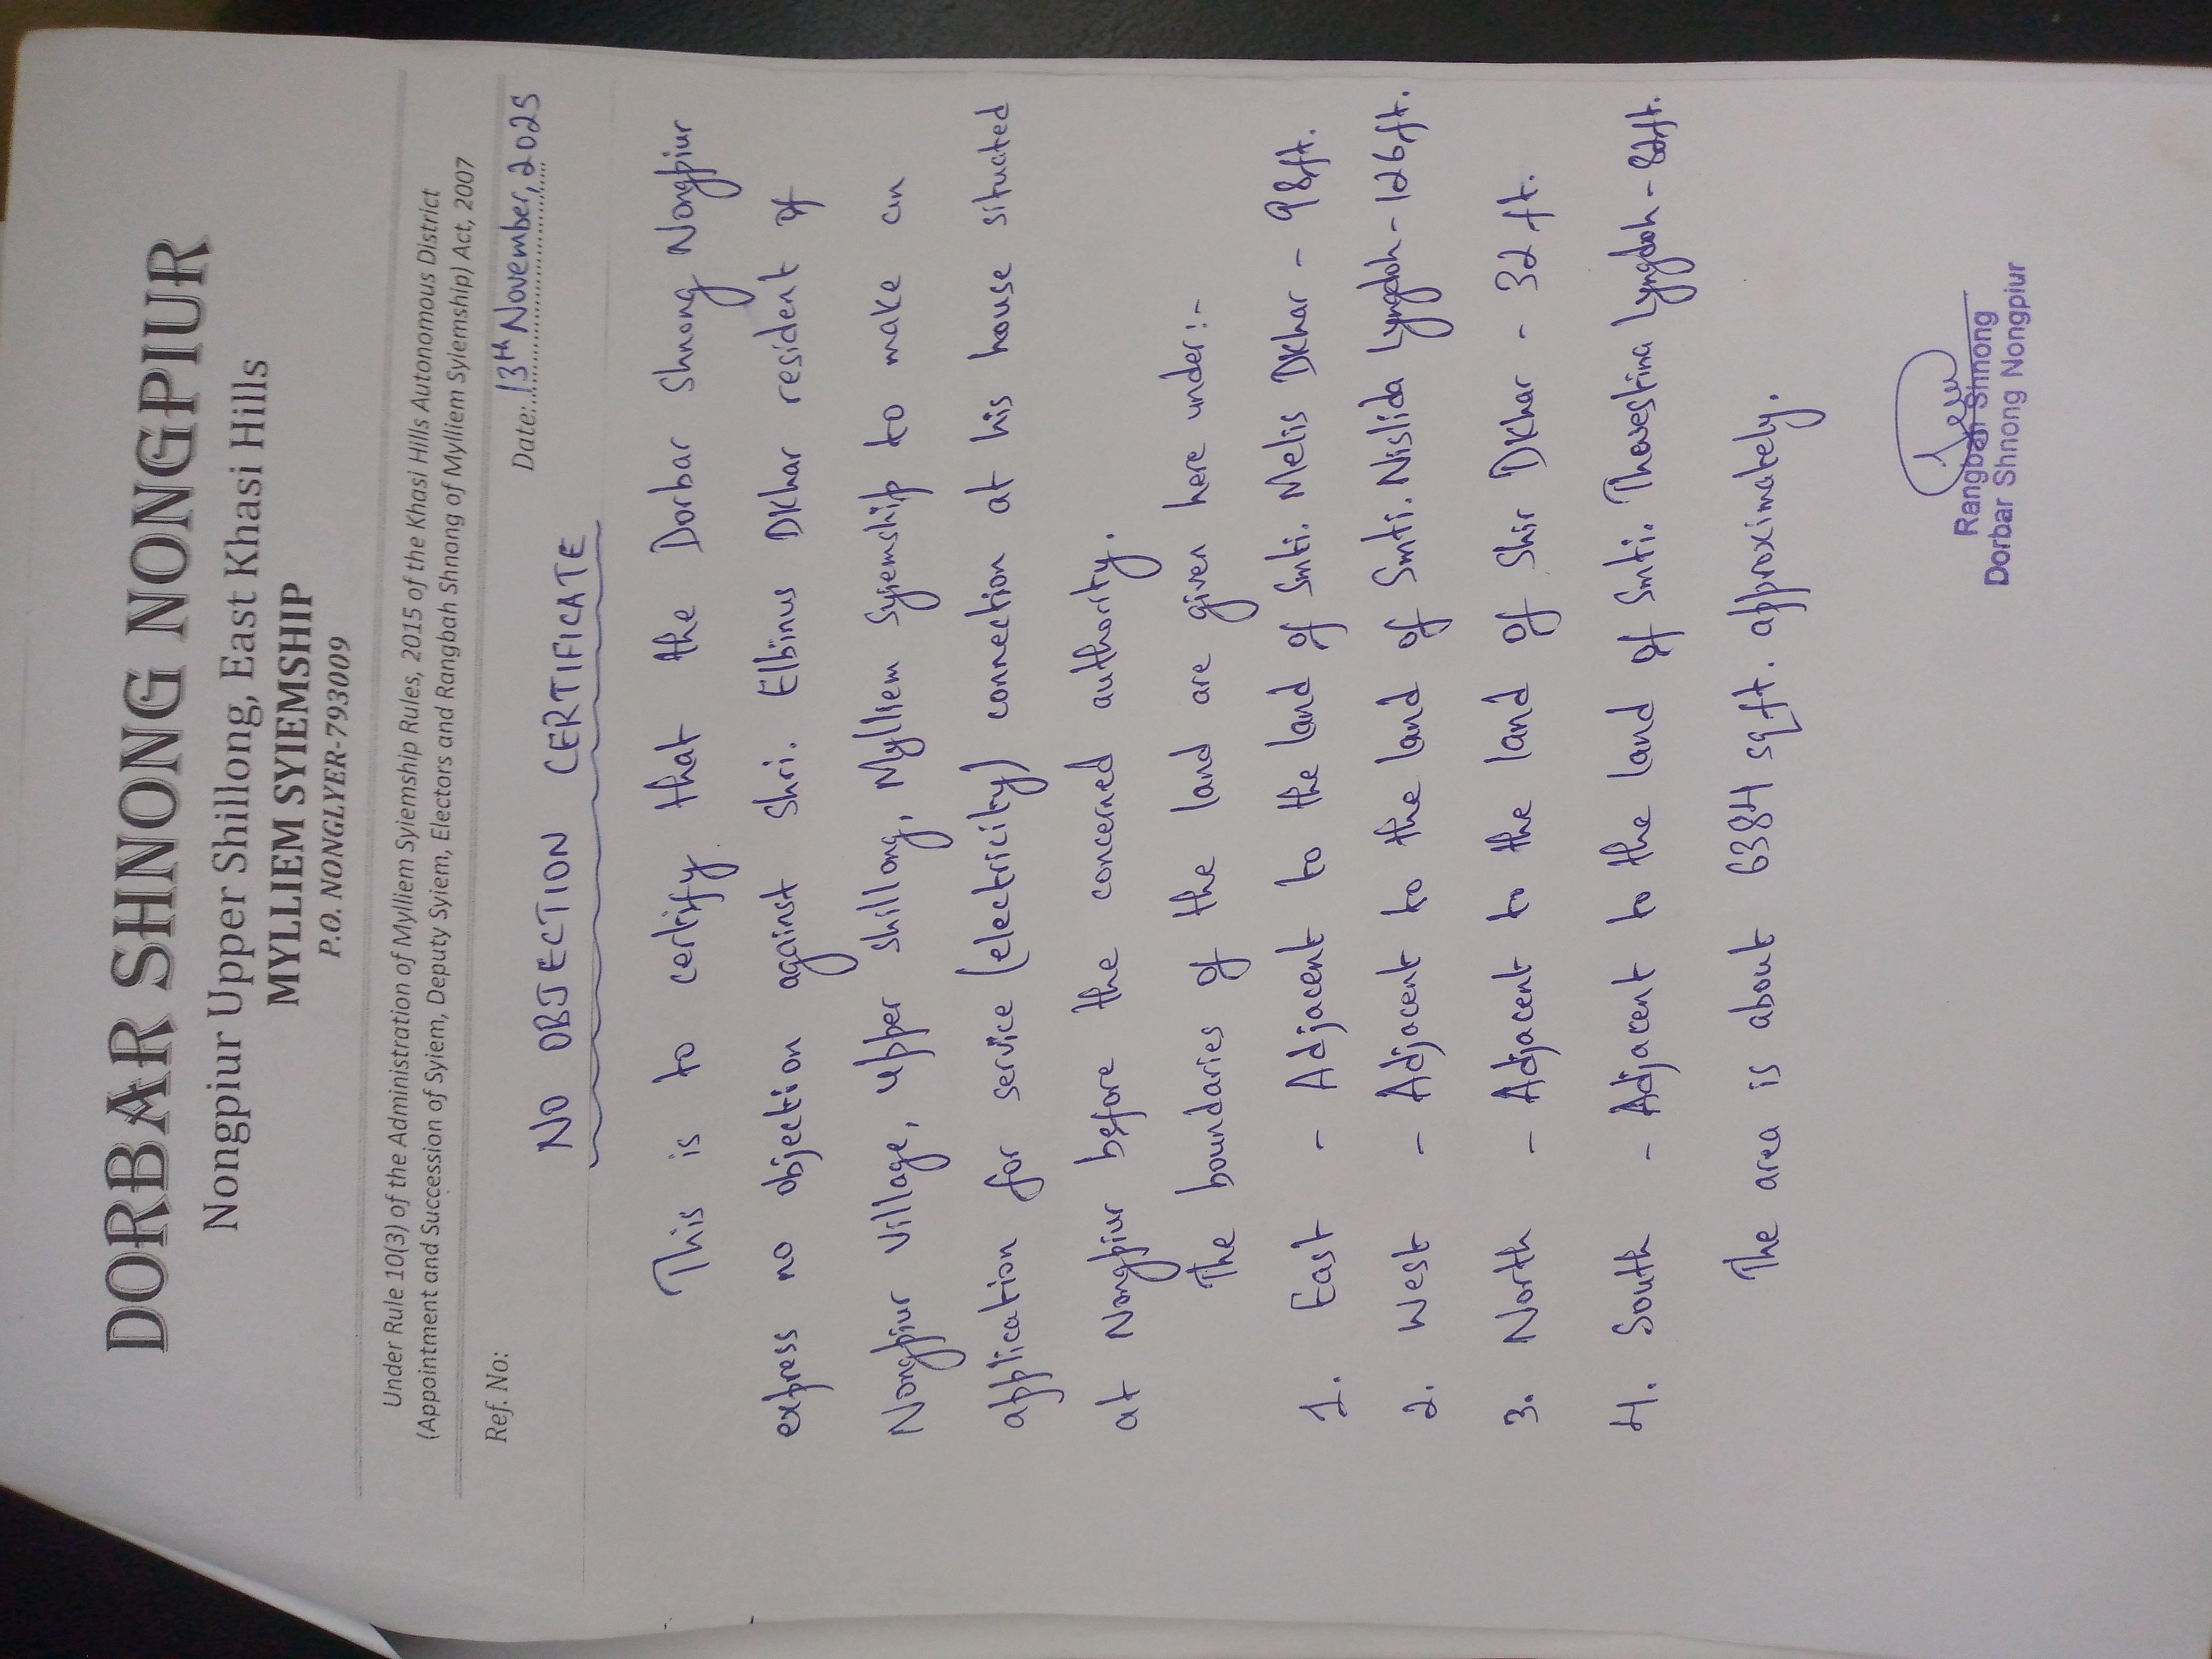 DORBAR SHNONG NONGPIUR
Nongpiur Upper Shillong, East Khasi Hills
MYLLIEM SYIEMSHIP
P.O. NONGLYER-793009
Under Rule 10(3) of the Administration of Mylliem Syiemship Rules, 2015 of the Khasi Hills Autonomous District
(Appointment and Succession of Syiem, Deputy Syiem, Electors and Rangbah Shnong of Mylliem Syiemship) Act, 2007
Ref. No: Date: 13th November, 2025
NO OBJECTION CERTIFICATE
This is to certify that the Dorbar Shnong Nongpiur
express no objection against Shri. Elbinus DKhar resident of
Nongpiur Village, Upper Shillong, Mylliem Syiemship to make an
application for service (electricity) connection at his house situated
at Nongpiur before the concerned authority.
The boundaries of the land are given here under:-
1. East - Adjacent to the land of Smti. Melis DKhar - 98ft.
2. West - Adjacent to the land of Smti. Nislida Lyngdoh - 126ft.
3. North - Adjacent to the land of Shir DKhar - 32 ft.
4. South - Adjacent to the land of Smti. Thovestina Lyngdoh - 82ft.
The area is about 6384 sq.ft. approximately.
Rangbah Shnong
Dorbar Shnong Nongpiur